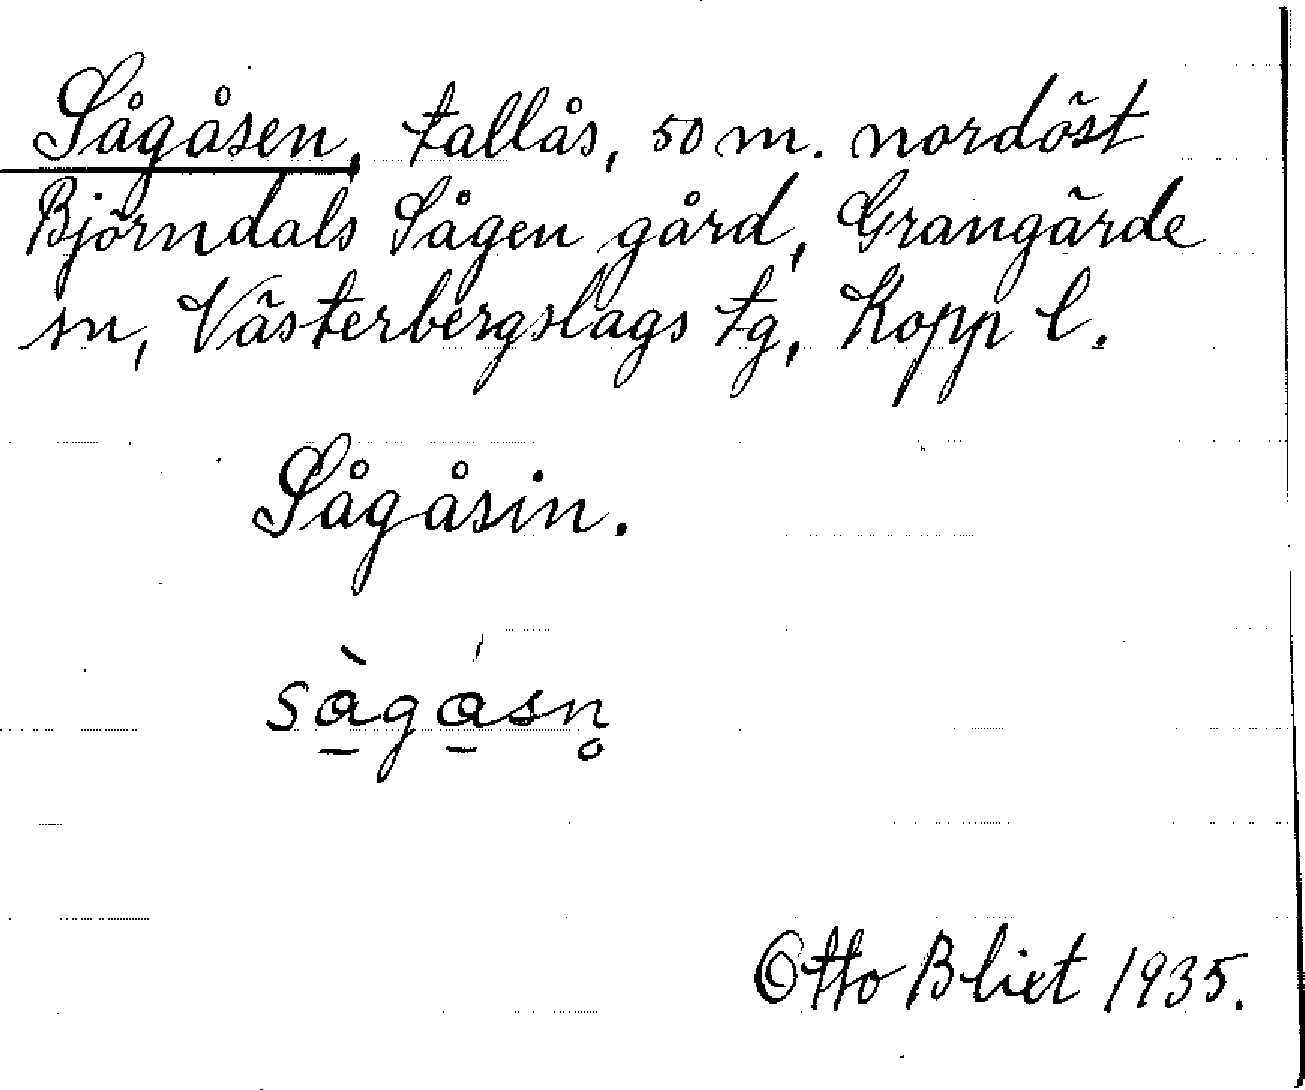 Sågåsen, tallås, 50 m. nordöst
Björndals Sågen gård, Grangärde
sn, Västerbergslags tg, Kopp l.
Sågåsin.
sàgásn̥
Otto Bliet 1935.